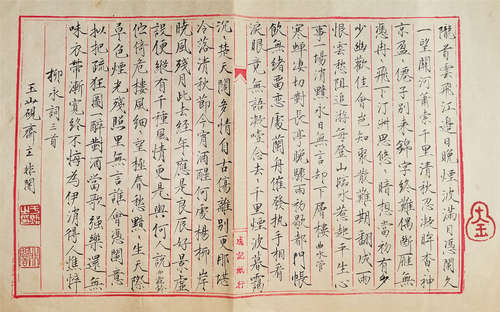 隴首雲飛江邊日晚煙波滿目憑闌久
一望關河蕭索千里清秋忍凝眸杳〻神
京盈〻僊子別來錦字終難偶斷雁無
憑冉〻飛下汀洲思悠〻暗想當初有多
少幽歡佳會豈知聚散難期翻成雨
恨雲愁阻追游每登山臨水惹起平生心
事一場消黯永日無言却下層樓 曲玉管
寒蟬淒切對長亭晚驟雨初歇都門帳
飲無緒留戀處蘭舟催發執手相看
淚眼竟無語凝噎念去〻千里煙波暮靄
沉〻楚天闊多情自古傷離別更那堪
冷落清秋節今宵酒醒何處楊柳岸
曉風殘月此去經年應是良辰好景虛
設便縱有千種風情更與何人說 雨霖鈴
佇倚危樓風細〻望極春愁黯〻生天際
草色煙光殘照裏無言誰會憑闌意
擬把疏狂圖一醉對酒當歌強樂還無
味衣帶漸寬終不悔為伊消得人憔悴
柳永詞三首
玉山硯齋主非闇
成記紙行